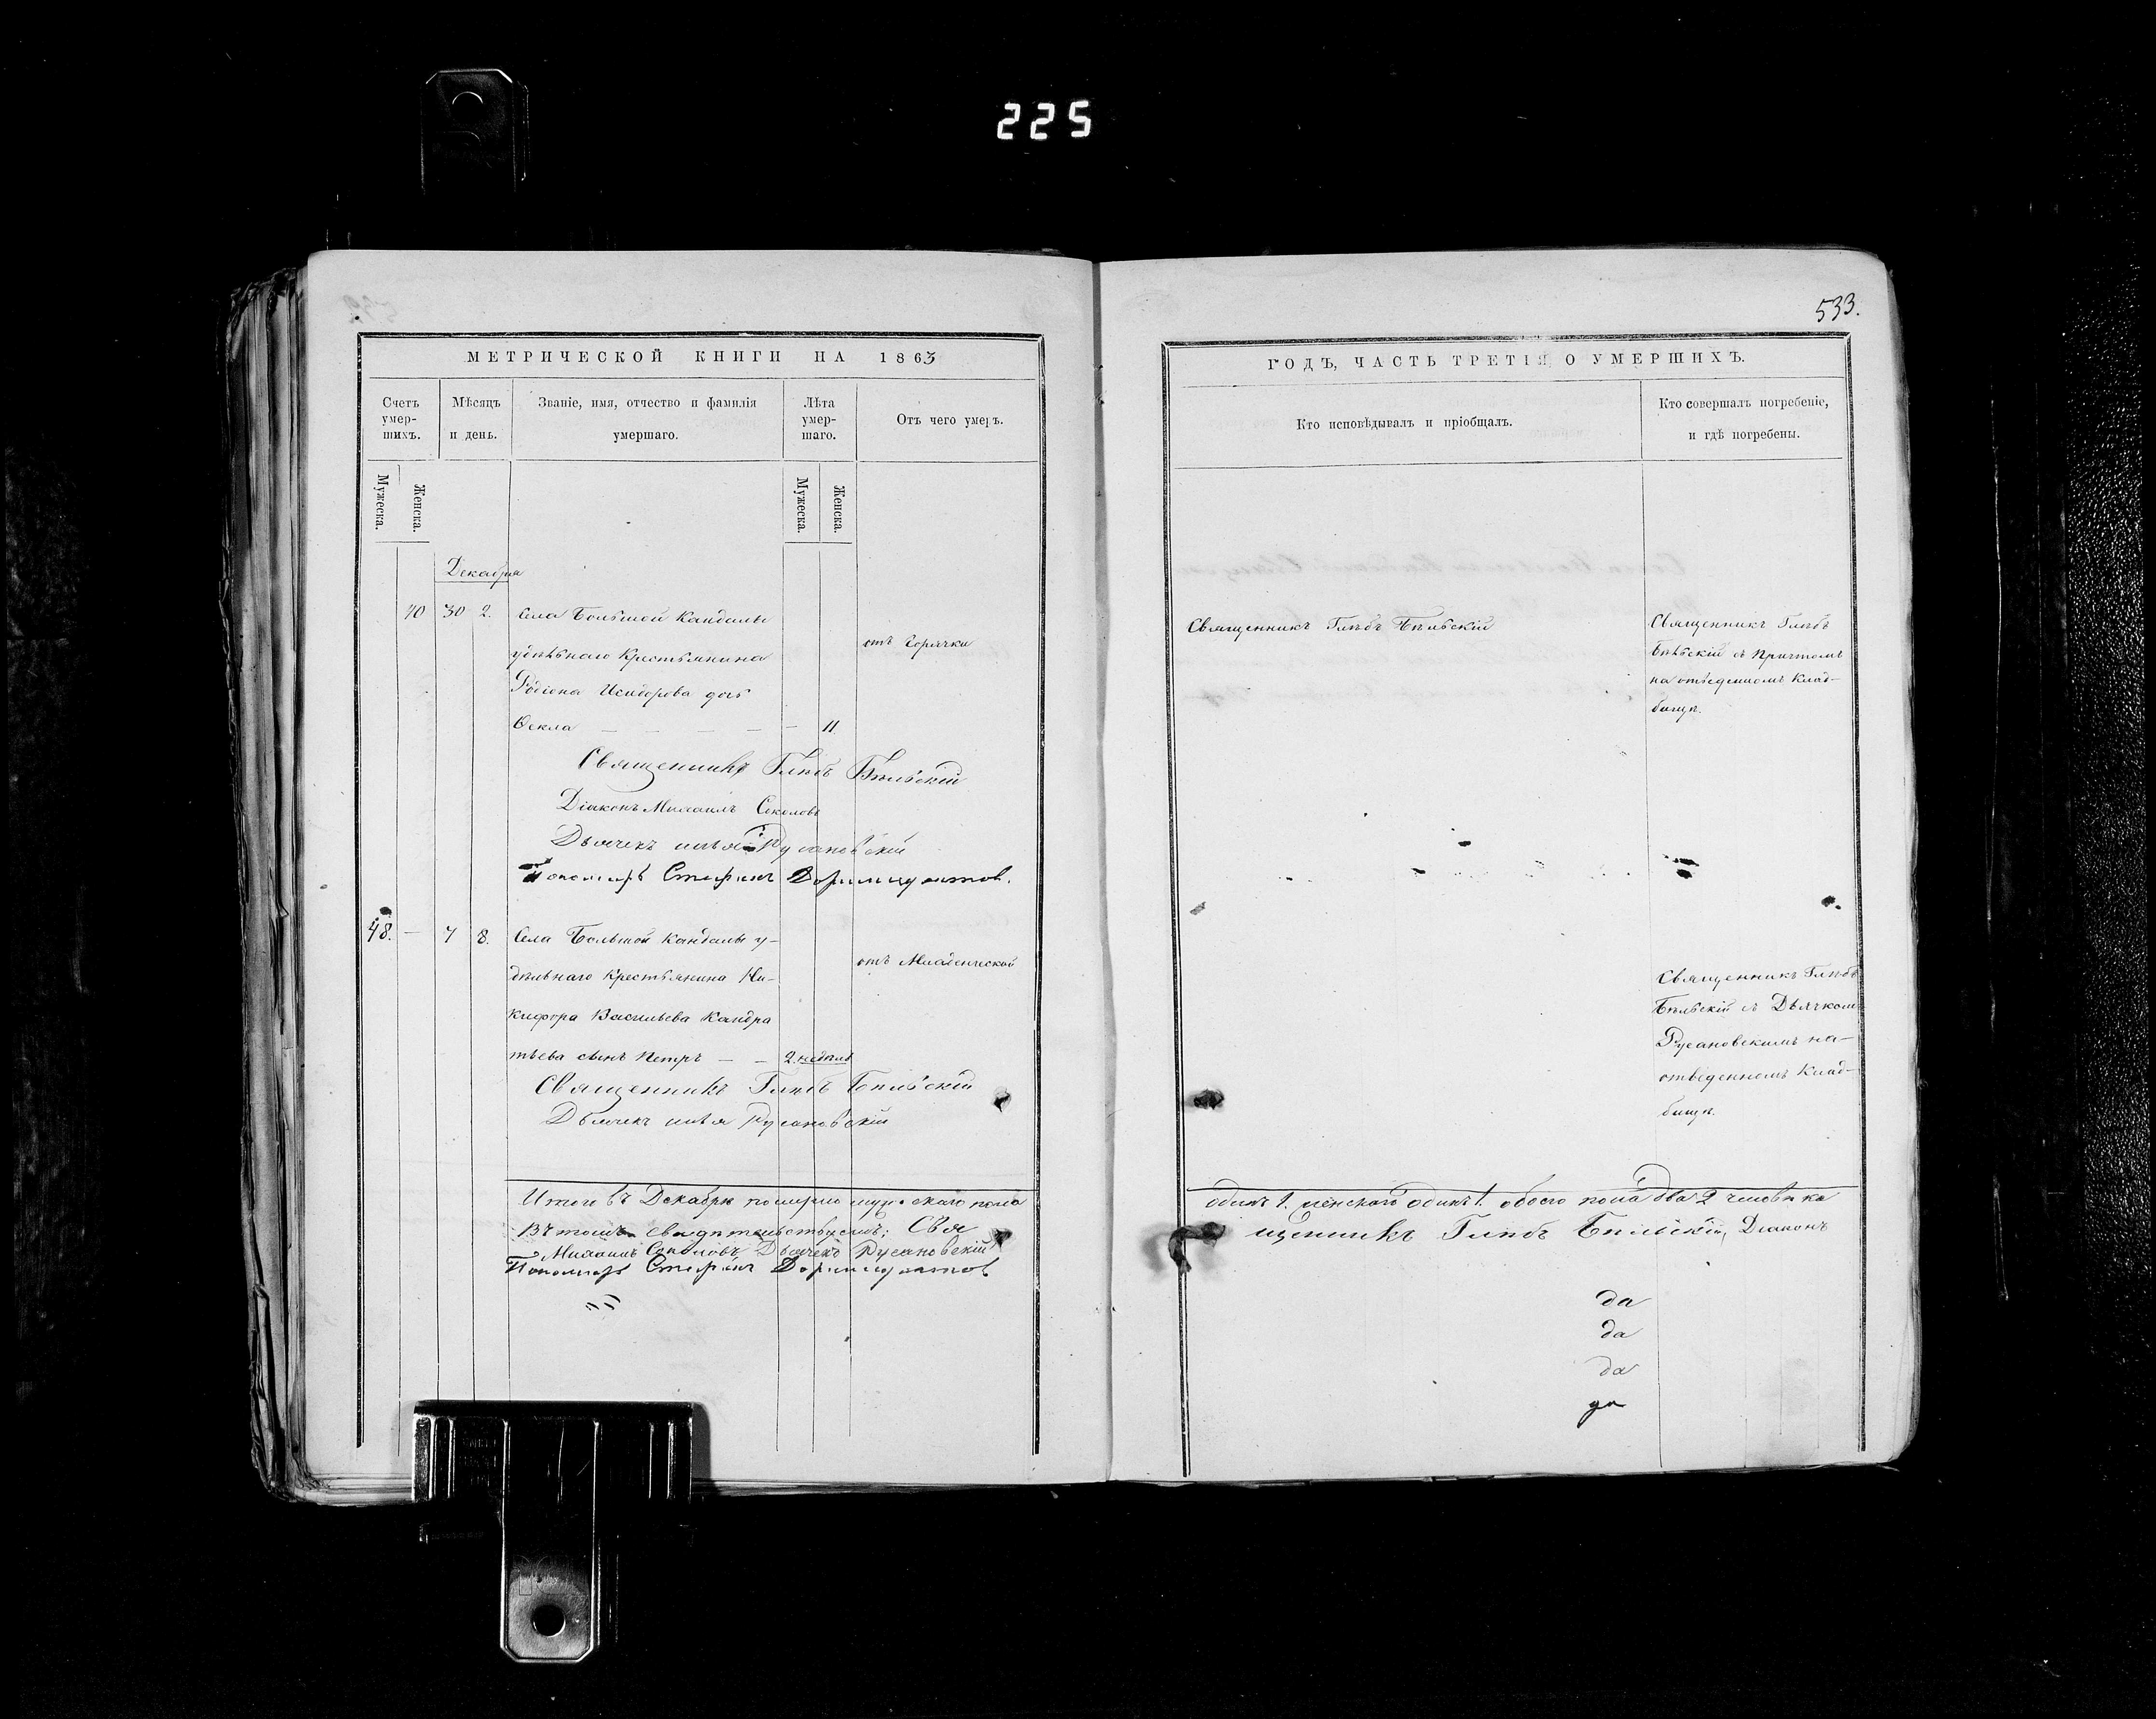 225
533.
МЕТРИЧЕСКОЙ КНИГИ НА 1863
Счетъ умер-шихъ.
Мѣсяцъ и день.
Званіе, имя, отчество и фамилія умершаго.
Лѣта умер-шаго.
Отъ чего умеръ.
Мужеска.
Женска.
Мужеска.
Женска.
Декабря
40 30 2. Села Большой Кандалы
удѣльнаго Крестьянина
Родіона Исидорова дочь
Ѳекла — — — — — 11
отъ Горячки
Священникъ Глѣбъ Бѣльскій
Діаконъ Михаилъ Соколовъ
Дьячекъ Илья Русановскій
Пономарь Стефанъ Доримедонтов.
48. — 7 8. Села Большой Кандалы у-
дѣльнаго Крестьянина Ни-
кифора Васильева Кандра
тьева сынъ Петръ — — 2 недѣль
отъ Младенческой
Священникъ Глѣбъ Бѣльскій
Дьячекъ Илья Русановскій
Итого въ Декабрѣ померло мужескаго пола
Въ томъ свидѣтельствуемъ: Свя
Михаилъ Соколовъ Дьячекъ Русановскій
Пономарь Стефанъ Доримедонтов
ГОДЪ, ЧАСТЬ ТРЕТІЯ О УМЕРШИХЪ.
Кто исповѣдывалъ и пріобщалъ.
Кто совершалъ погребеніе,
и гдѣ погребены.
Священникъ Глѣбъ Бѣльскій
Священникъ Глѣбъ
Бѣльскій съ Причтомъ
на отведенномъ Клад-
бищѣ.
Священникъ Глѣбъ
Бѣльскій съ Дьячкомъ
Русановскимъ на-
отведенномъ Клад-
бищѣ.
одинъ 1. женскаго одинъ 1. обоего пола два 2 человѣка
щенникъ Глѣбъ Бѣльскій, Діаконъ
да
да
да
да